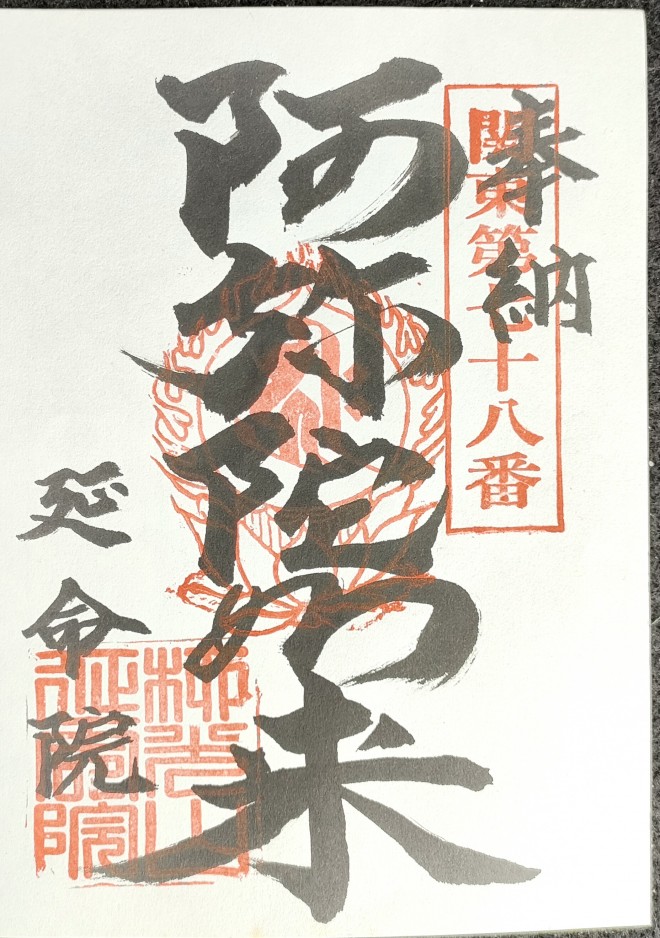 奉納
関東第七十八番
阿弥陀如来
延命院
光山
延命院